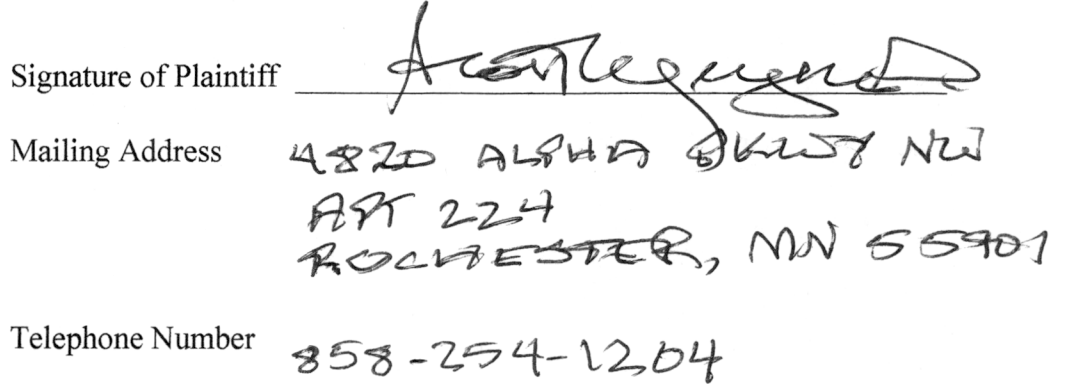 Signature of Plaintiff
Mailing Address 4820 ALPHA PKWY NW
APT 224
ROCHESTER, MN 55901
Telephone Number 858-254-1204